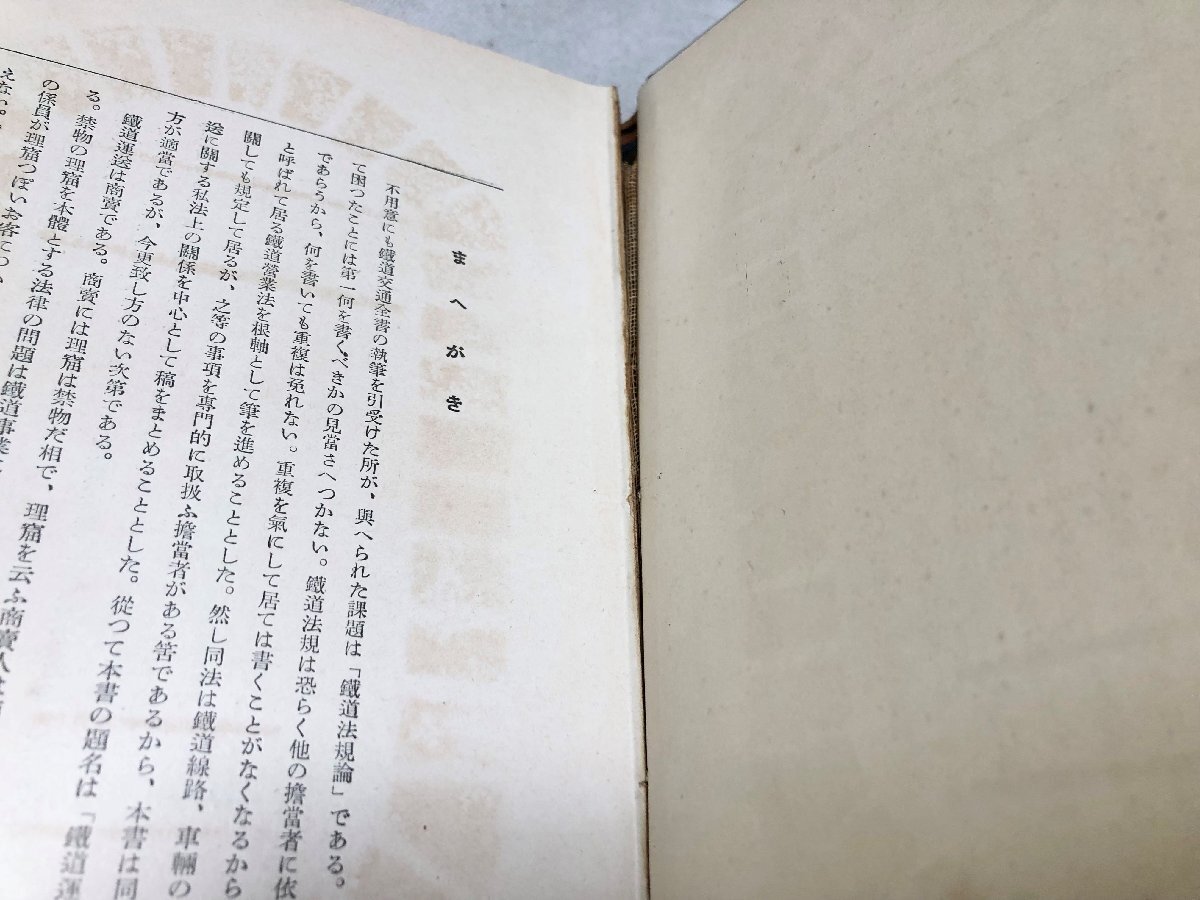 まへがき
不用意にも鐵道交通全書の執筆を引受けた所が、與へられた課題は「鐵道法規論」である。
て困つたことには第一何を書くべきかの見當さへつかない。鐵道法規は恐らく他の擔當者に依
であらうから、何を書いても重複は免れない。重複を氣にして居ては書くことがなくなるから
と呼ばれて居る鐵道營業法を根軸として筆を進めることとした。然し同法は鐵道線路、車輛の
關しても規定して居るが、之等の事項を專門的に取扱ふ擔當者がある筈であるから、本書は同
送に關する私法上の關係を中心として稿をまとめることとした。從つて本書の題名は「鐵道運
方が適當であるが、今更致し方のない次第である。
鐵道運送は商賣である。商賣には理窟は禁物だ相で、理窟を云ふ商賣人は
る。禁物の理窟を本體とする法律の問題は鐵道事業
の係員が理窟つぽいお客につ
えない。